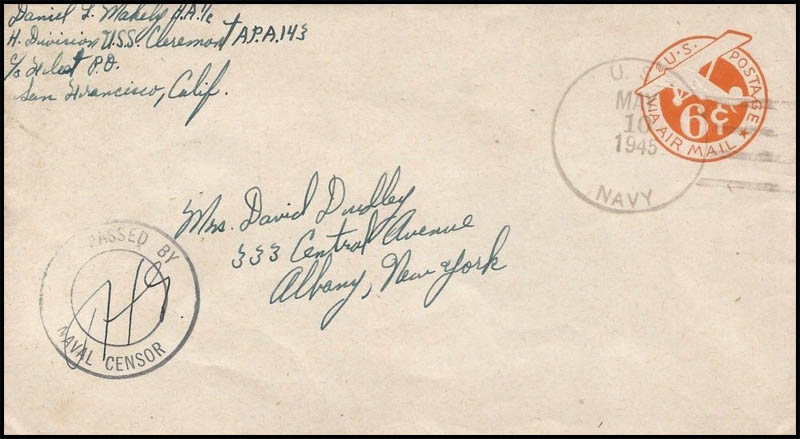 Daniel L. Makely H.A. 1/c
H. Division U.S.S. Claremont A.P.A. 143
c/o Fleet P.O.
San Francisco, Calif.
U.S. POSTAGE
VIA AIR MAIL
6¢
U.S.
MAY
10
1945
NAVY
Mrs. David Dudley
333 Central Avenue
Albany, New York
PASSED BY
NAVAL CENSOR